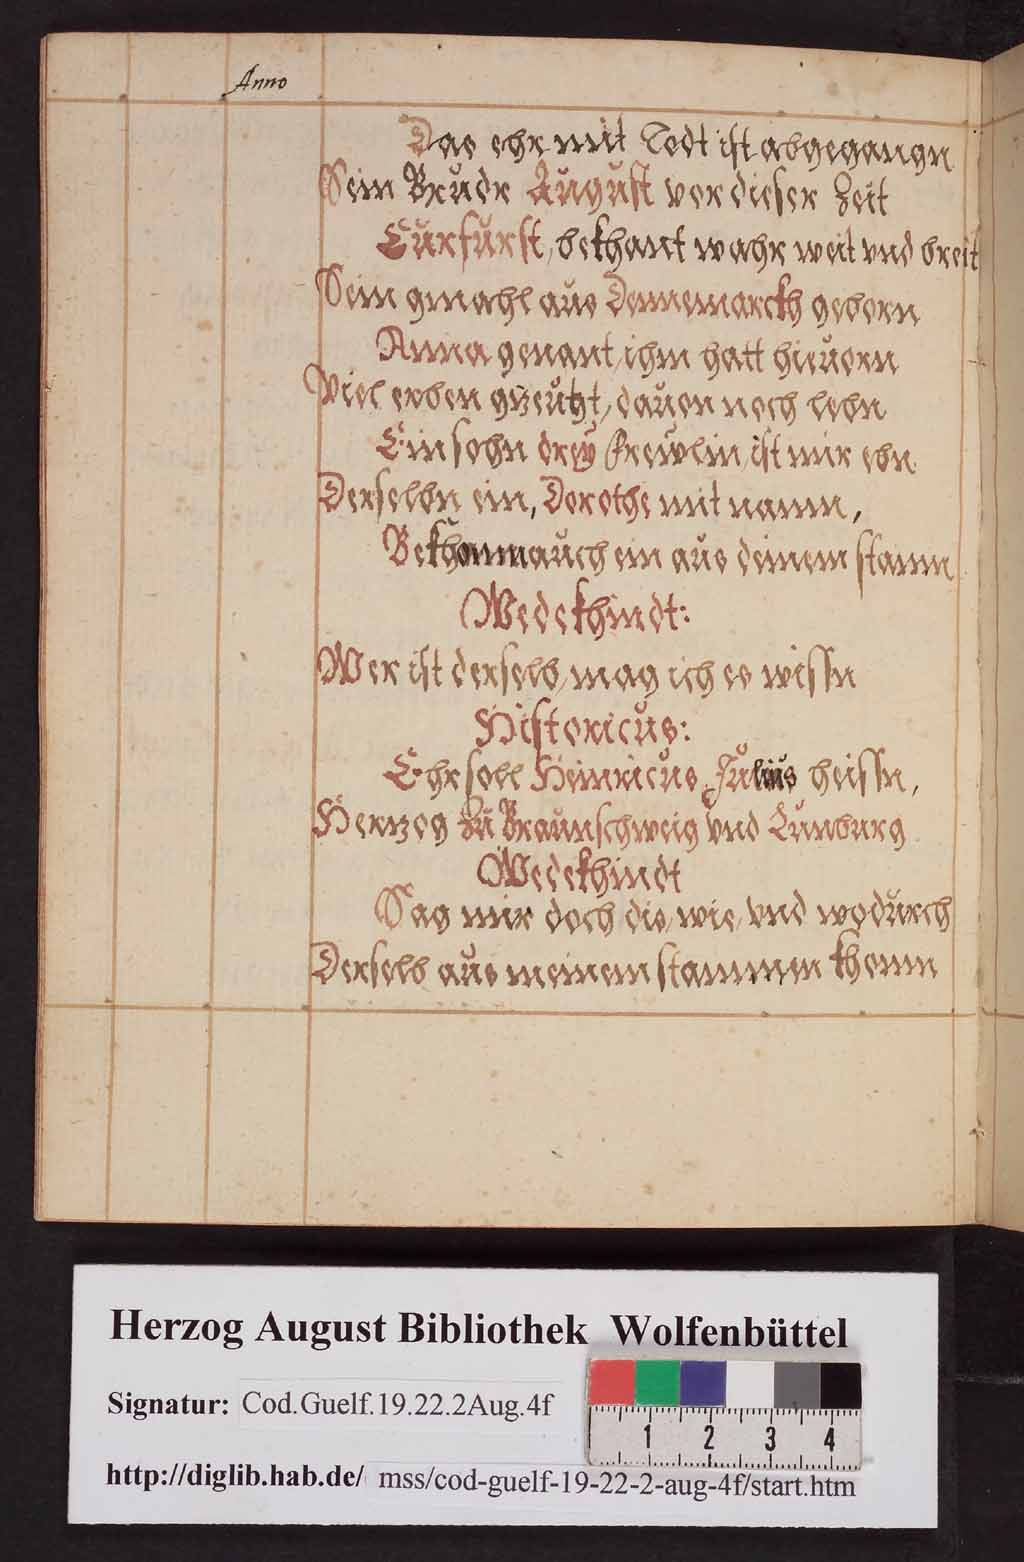 Anno
Das ehr mit Todt ist abgegangn
Sein Brudr August vor dieser Zeit
Curfurst, bekhant wahr weit vnd breit
Sein gmahl aus Dennemarckh geborn
Anna genant, ihm hatt hieuorn
Viel erben gzeutzt, dauon noch lebn
Ein sohn drey frewlin, ist mir ebn
Derselbn ein, Dorothe mit namn,
Bekhomm auch ein aus deinem stamn
Wedekhindt:
Wer ist derselb, mag ich es wissn
Historicus:
Ehr soll Heinricus Julius heissn,
Hertzog zu Braunschweig vnd Lunburg
Wedekhindt
Sag mir doch die, wie, vnd wodurch
Derselb aus meinem stammen khomn
Herzog August Bibliothek Wolfenbüttel
Signatur: Cod.Guelf.19.22.2Aug.4f
1 2 3 4
http://diglib.hab.de/ mss/cod-guelf-19-22-2-aug-4f/start.htm